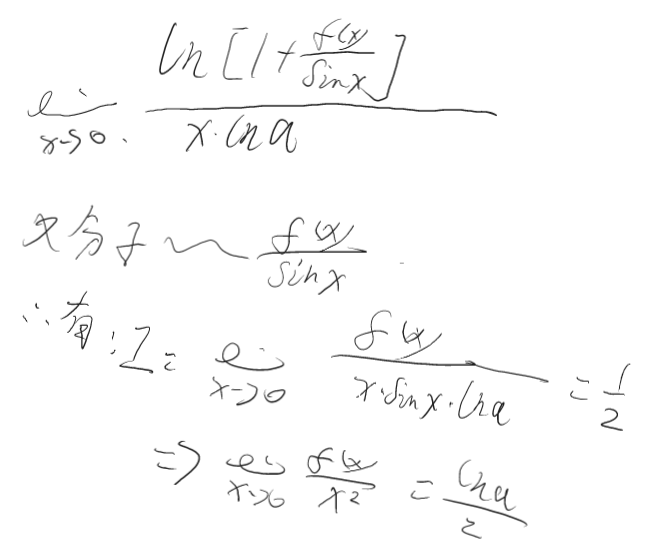 lim x→0. ln[1+f(x)/sinx] / x·lna
又分子 ~ f(x)/sinx
∴有: I = lim x→0 f(x)/x·sinx·lna = 1/2
⇒ lim x→0 f(x)/x² = lna/2